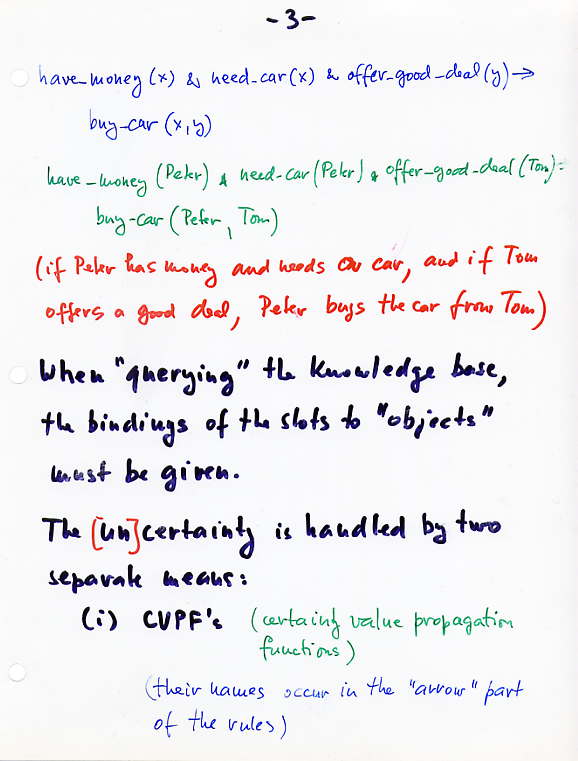 -3-
have_money (x) & need-car (x) & offer-good-deal (y) →
buy-car (x,y)
have_money (Peter) & need-car (Peter) & offer-good-deal (Tom) =
buy-car (Peter, Tom)
(if Peter has money and needs a car, and if Tom
offers a good deal, Peter buys the car from Tom)
When "querying" the knowledge base,
the bindings of the slots to "objects"
must be given.
The [un]certainty is handled by two
separate means:
(i) CVPF's (certainty value propagation
functions)
(their names occur in the "arrow" part
of the rules)